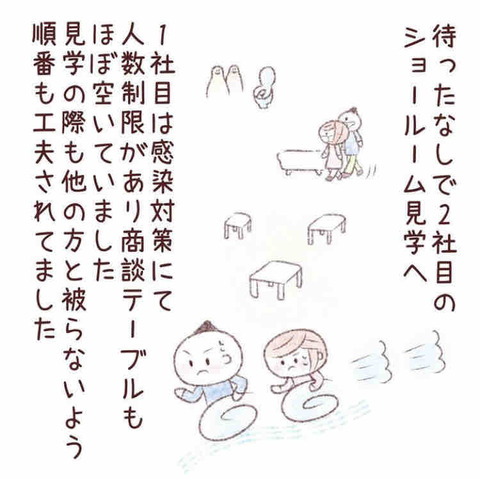 待ったなしで2社目の
ショールーム見学へ
1社目は感染対策にて
人数制限があり商談テーブルも
ほぼ空いていました
見学の際も他の方と被らないよう
順番も工夫されてました